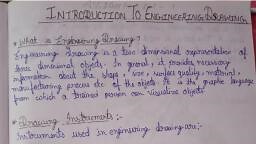 INTRODUCTION TO ENGINEERING DRAWING
* What is Engineering Drawing?
Engineering drawing is a two dimensional representation of
three dimensional objects. In general, it provides necessary
information about the shape, size, surface quality, material,
manufacturing process etc. of the object. It is the graphic language
from which a trained person can visualise objects.
* Drawing Instruments:-
Instruments used in engineering drawing are:-